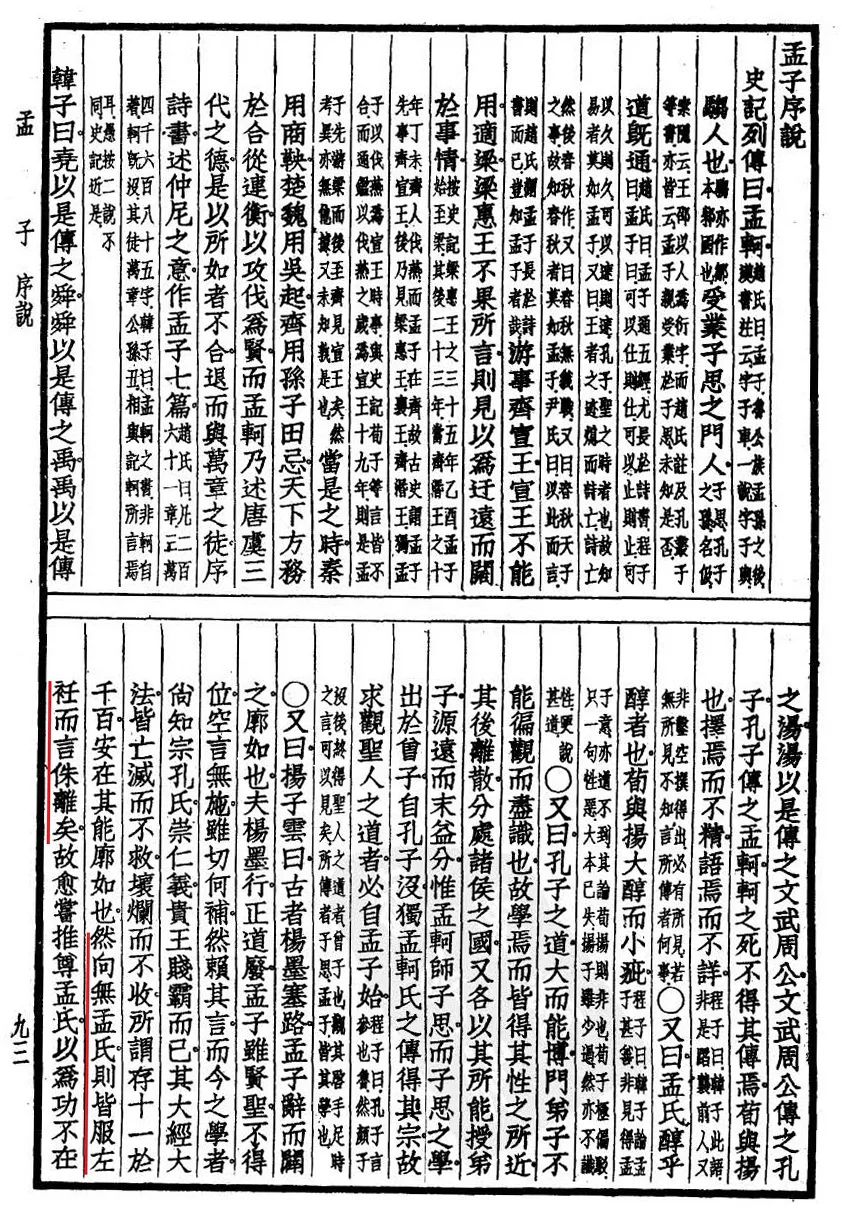 孟子序說
史記列傳曰孟軻趙氏曰孟子魯公族孟孫之後漢書註云字子車一說字子輿
騶人也騶亦作鄒本邾國也受業子思之門人子思孔子之孫名伋
索隱云王劭以人爲衍字而趙氏註及孔叢子等書亦皆云孟子親受業於子思未知是否
道旣通趙氏曰孟子通五經尤長於詩書程子曰孟子曰可以仕則仕可以止則止可
以久則久可以速則速孔子聖之時者也故知易者莫如孟子又曰王者之迹熄而詩亡詩亡
然後春秋作又曰春秋無義戰又曰春秋天子之事故知春秋者莫如孟子尹氏曰以此而言
則趙氏謂孟子長於詩書而已豈知孟子者哉游事齊宣王宣王不能
用適梁梁惠王不果所言則見以爲迂遠而闊
於事情按史記梁惠王之三十五年乙酉孟子始至梁其後二十三年當齊湣王之十
年丁未齊人伐燕而孟子在齊故古史謂孟子先事齊宣王後乃見梁惠王襄王齊湣王獨孟
子以伐燕爲宣王時事與史記荀子等書皆不合而通鑑以伐燕之歲爲宣王十九年則是孟
子先游梁而後至齊見宣王矣然考異亦無他據又未知孰是也當是之時秦
用商鞅楚魏用吳起齊用孫子田忌天下方務
於合從連衡以攻伐爲賢而孟軻乃述唐虞三
代之德是以所如者不合退而與萬章之徒序
詩書述仲尼之意作孟子七篇趙氏曰凡二百六十一章三萬
四千六百八十五字韓子曰孟軻之書非軻自著軻旣沒其徒萬章公孫丑相與記軻所言焉
耳愚按二說不同史記近是
韓子曰堯以是傳之舜舜以是傳之禹禹以是傳
之湯湯以是傳之文武周公文武周公傳之孔
子孔子傳之孟軻軻之死不得其傳焉荀與揚
也擇焉而不精語焉而不詳程子曰韓子此語非是蹈襲前人又
非鑿空撰得出必有所見若無所見不知言所傳者何事○又曰孟氏醇乎
醇者也荀與揚大醇而小疵程子曰韓子論孟子甚善非見得孟
子意亦道不到其論荀揚則非也荀子極偏駁只一句性惡大本已失揚子雖少過然亦不識
性更說甚道○又曰孔子之道大而能博門弟子不
能徧觀而盡識也故學焉而皆得其性之所近
其後離散分處諸侯之國又各以其所能授弟
子源遠而末益分惟孟軻師子思而子思之學
出於曾子自孔子沒獨孟軻氏之傳得其宗故
求觀聖人之道者必自孟子始程子曰孔子言參也魯然顏子
沒後終得聖人之道者曾子也觀其啓手足時之言可以見矣所傳者子思孟子皆其學也
○又曰揚子雲曰古者楊墨塞路孟子辭而闢
之廓如也夫楊墨行正道廢孟子雖賢聖不得
位空言無施雖切何補然賴其言而今之學者
尙知宗孔氏崇仁義貴王賤霸而已其大經大
法皆亡滅而不救壞爛而不收所謂存十一於
千百安在其能廓如也然向無孟氏則皆服左
衽而言侏離矣故愈嘗推尊孟氏以爲功不在
孟子序說
九三